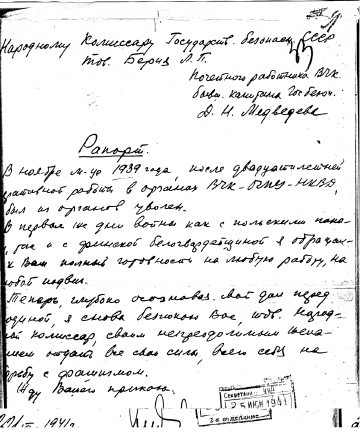 Народному Комиссару Государств. безопасн. СССР
тов. Берия Л.П.
Почетного работника ВЧК
бывш. капитана Гос.безоп.
Д. Н. Медведева
Рапорт.
В ноябре м-це 1939 года, после двадцатилетней
оперативной работы в органах ВЧК-ОГПУ-НКВД
был из органов уволен.
В первые же дни войны как с польскими пана-
, так и с финской белогвардейщиной я обращал-
к Вам полный готовности на любую работу, на
любой подвиг.
Теперь, глубоко осознавая свой долг перед
родиной, я снова беспокою Вас, тов. Народ-
ный комиссар, своим непреодолимым жела-
нием отдать все свои силы, всего себя на
борьбу с фашизмом.
Жду Вашего приказа.
Секретариат
25 ИЮН 1941
отделение
1941г.